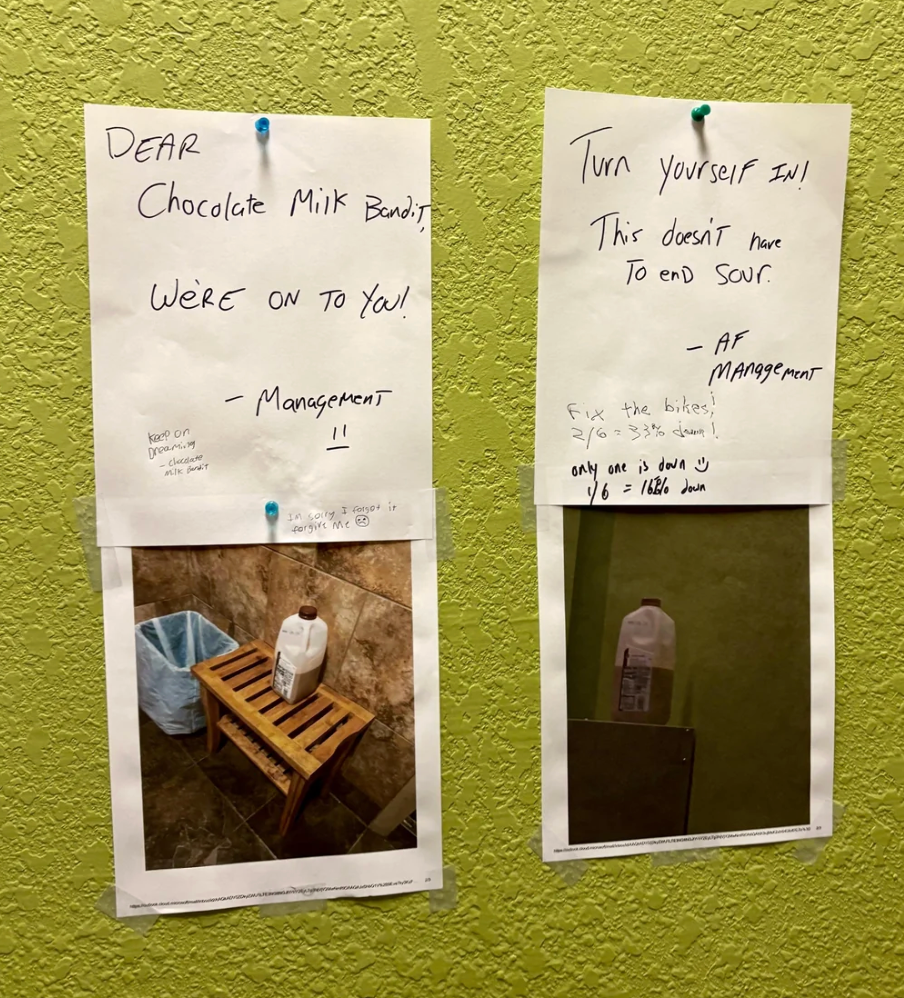 DEAR
Chocolate Milk Bandit,
WE'RE ON TO YOU!
- Management
Keep on
Dreaming
- Chocolate
Milk Bandit
I'm sorry I forgot it
forgive Me
Turn yourself IN!
This doesn't have
To end sour.
- AF
MANAgement
Fix the bikes!
2/6 = 33% down!
only one is down
1/6 = 16% down